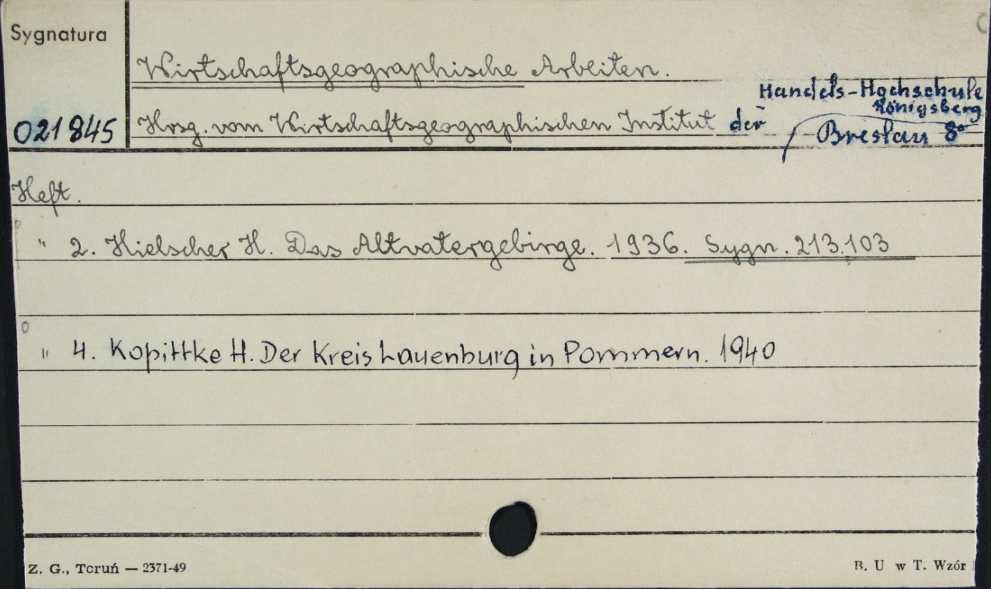 Sygnatura
Wirtschaftsgeographische Arbeiten.
Handels-Hochschule
Königsberg
021845 Hrsg. vom Wirtschaftsgeographischen Institut der Breslau 8°
Heft.
" 2. Hielscher H. Das Altvatergebirge. 1936. Sygn. 213.103
" 4. Kopittke H. Der Kreis Lauenburg in Pommern. 1940
Z. G., Toruń — 2371-49
B. U w T. Wzór